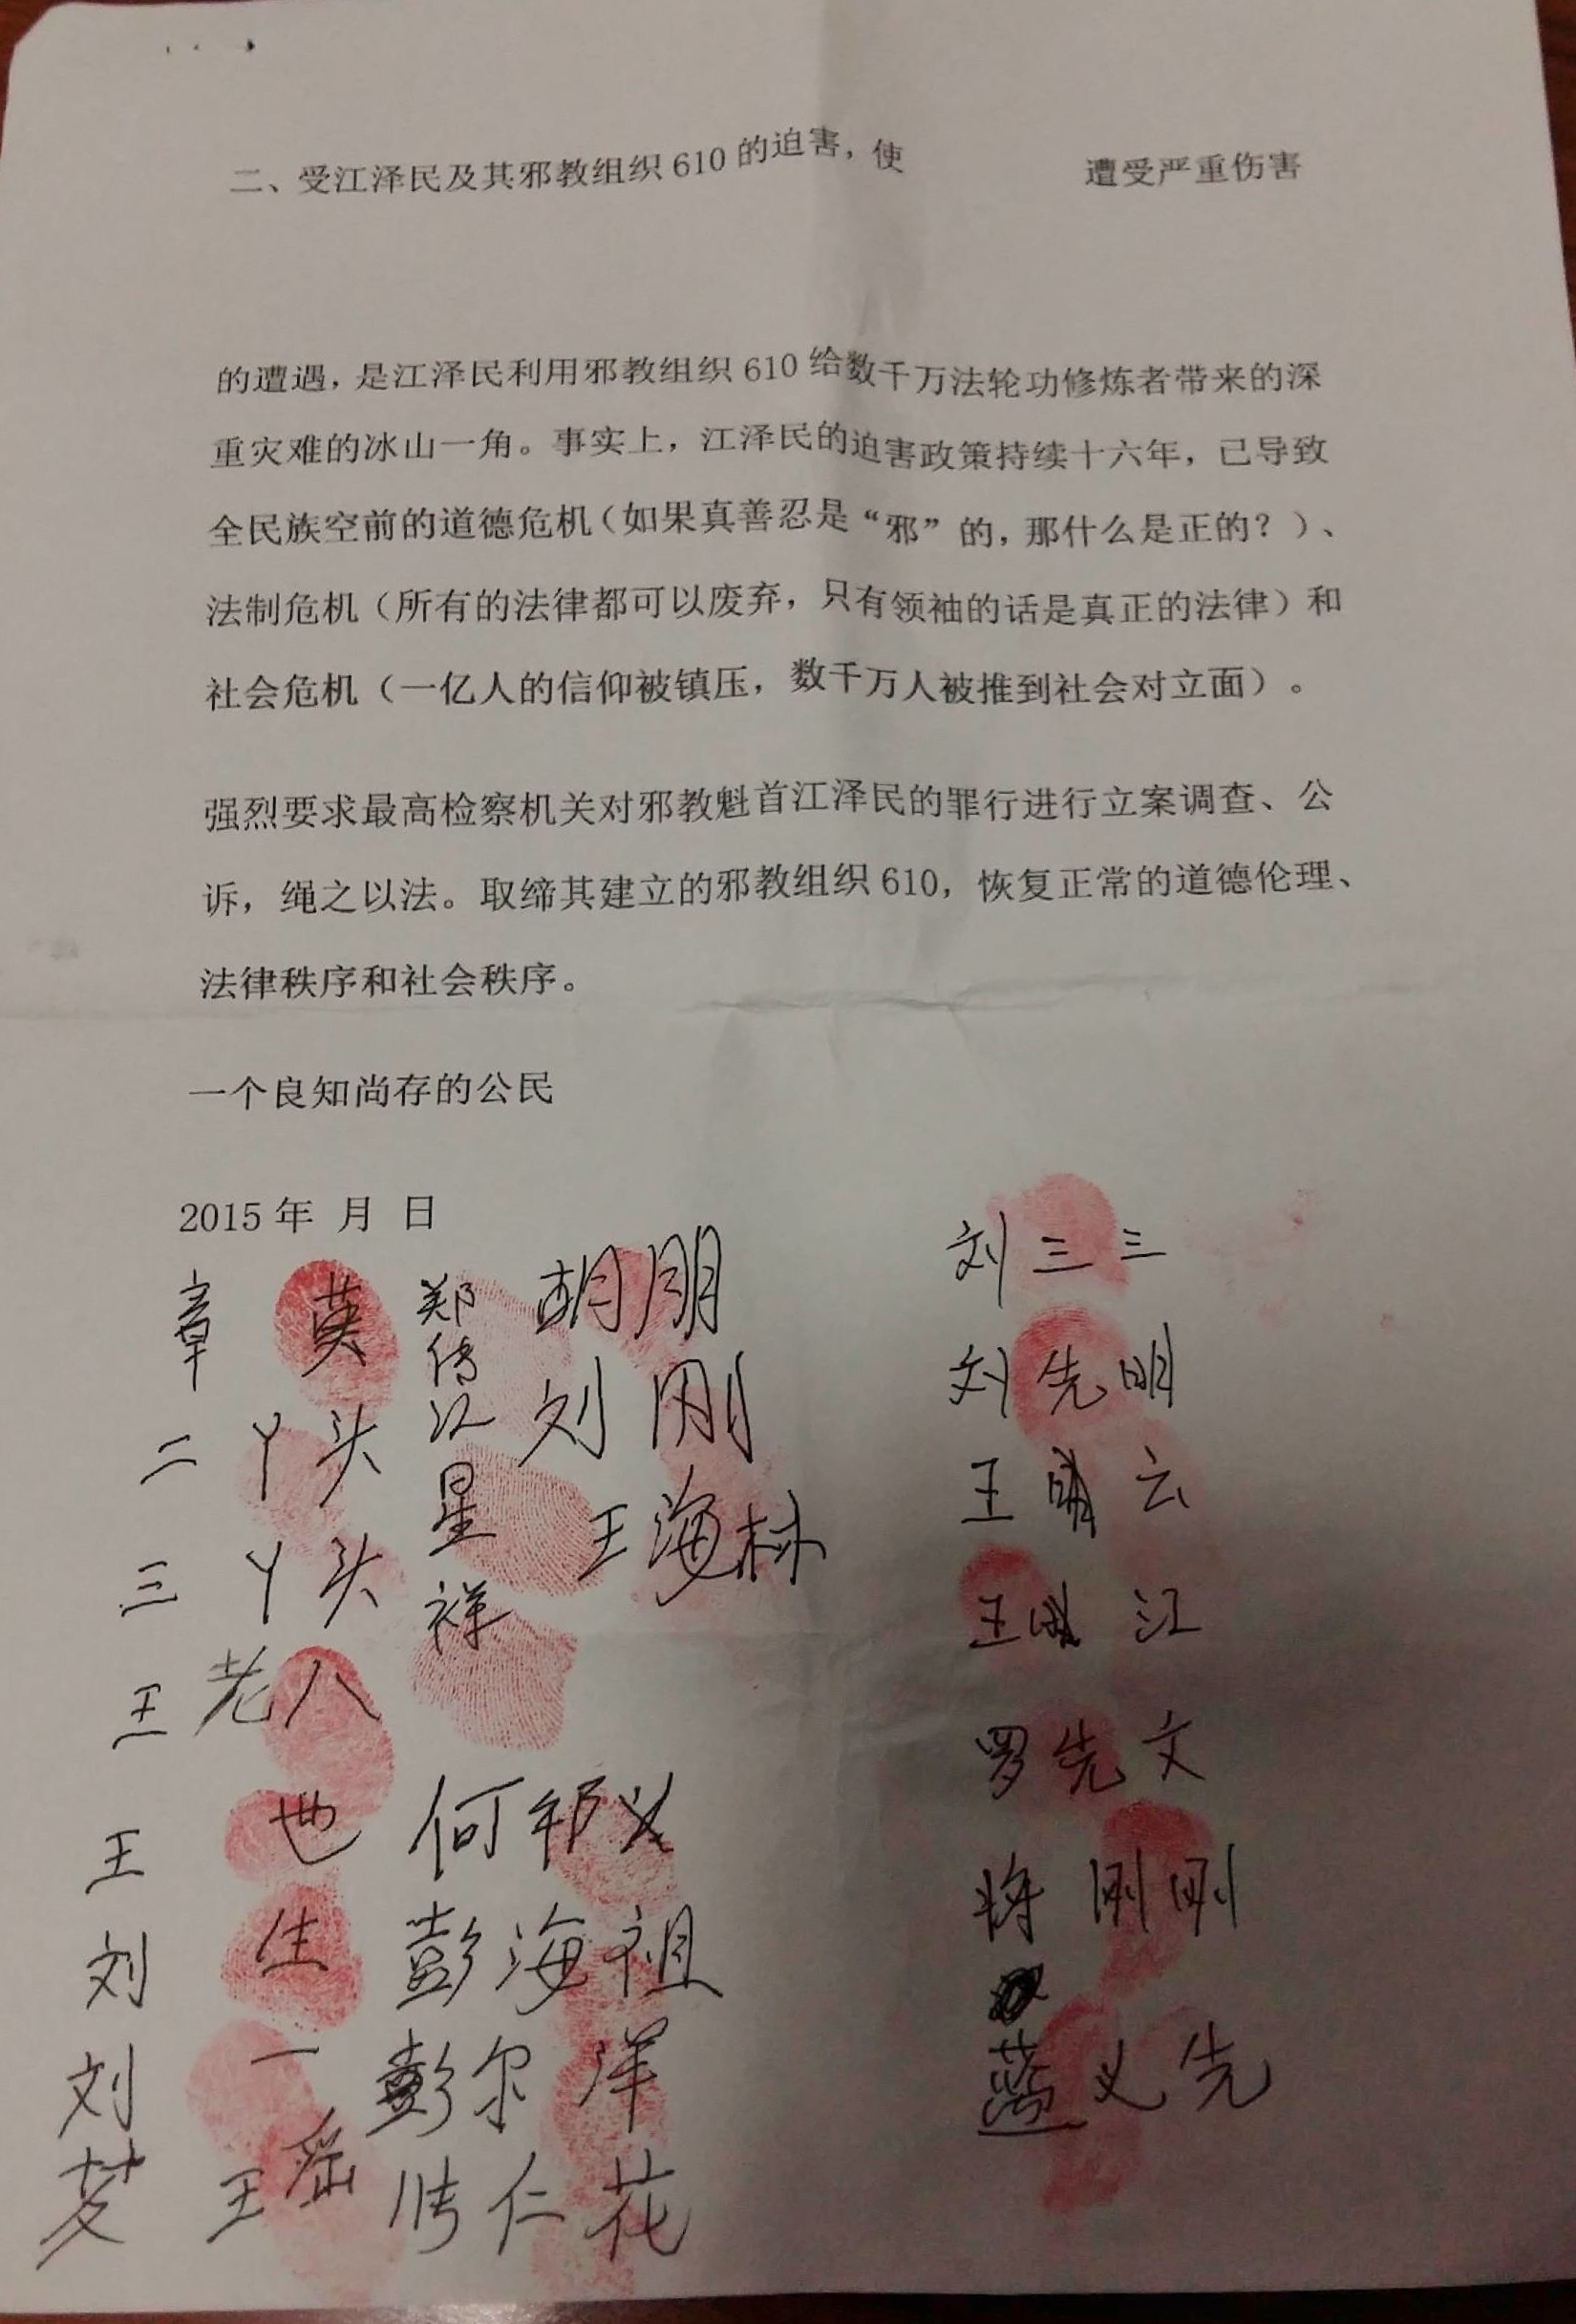 二、受江泽民及其邪教组织 610 的迫害，使 遭受严重伤害
的遭遇，是江泽民利用邪教组织 610 给数千万法轮功修炼者带来的深
重灾难的冰山一角。事实上，江泽民的迫害政策持续十六年，已导致
全民族空前的道德危机（如果真善忍是“邪”的，那什么是正的？）、
法制危机（所有的法律都可以废弃，只有领袖的话是真正的法律）和
社会危机（一亿人的信仰被镇压，数千万人被推到社会对立面）。
强烈要求最高检察机关对邪教魁首江泽民的罪行进行立案调查、公
诉，绳之以法。取缔其建立的邪教组织 610，恢复正常的道德伦理、
法律秩序和社会秩序。
一个良知尚存的公民
2015 年 月 日
章 英
二丫头
三丫头
王老八
王 也
刘 生
刘 一
王瑶
郑传江
星祥
胡朋
刘刚
王海林
何邦义
彭海祖
彭尔洋
仁花
刘三三
刘先明
王明云
王明江
罗先文
将刚刚
蓝义先